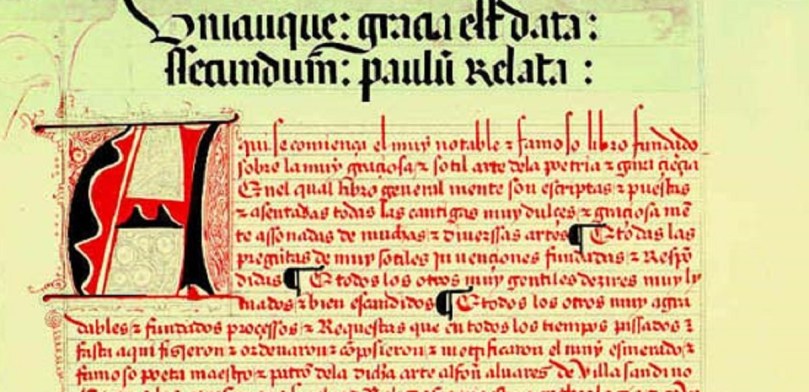 Vnicuique: gracia est data:
ssecundum̃: paulũ Relata:
Aqui se comiença el muy notable ⁊ famoso libro fundado
sobre la muy graçiosa ⁊ sotil arte dela poetria ⁊ gaya çiençia
En el qual libro general mente son escriptas ⁊ puestas
⁊ asentadas todas las cantigas muy dulçes ⁊ graciosa mẽ
te assonadas de muchas ⁊ diuerssas artes ¶ E todas las
pregũtas de muy sotiles juuençiones fundadas ⁊ Respõ
didas ¶ E todos los otros muy gentiles dezires muy ly
mados ⁊ bien escandidos ¶ E todos los otros muy agra
dables ⁊ fundados proçessos ⁊ Requestas que en todos los tiempos passados ⁊
fasta aqui fisyeron ⁊ ordenaron ⁊ cõpusieron ⁊ metrificaron el muy esmerado ⁊
famoso poeta maestro ⁊ patrõ dela dicha arte alfon aluares de villa sandino